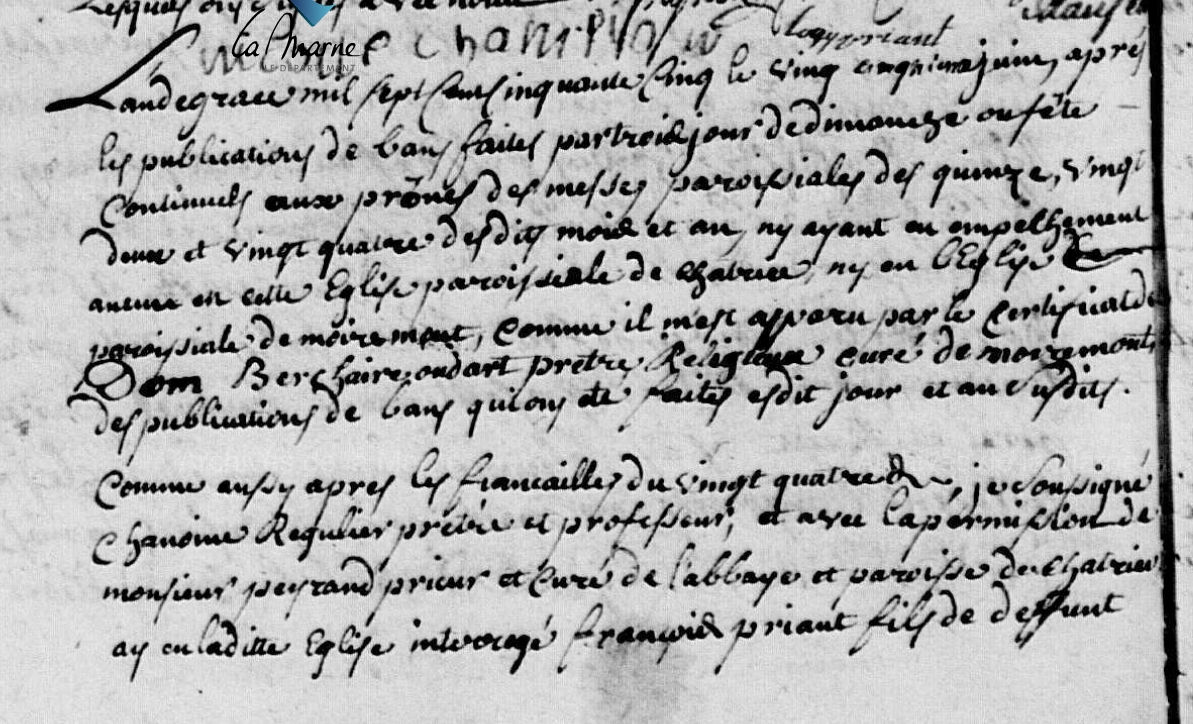 La Marne
LE DÉPARTEMENT
Landegrace mil sept Cent Cinquante Cinq le vingt cinquieme juin, après
les publications de bans faites par trois jour de dimanche ou fête
Continuels aux prônes des messes paroissiales des quinze, vingt
deux et vingt quatre desdits mois et an, ny ayant eu empeschement
aucun en cette Eglise paroissiale de Chatrice, ny en l'Eglise
paroissiale de moiremont, comme il m'est apparu par le Certificat de
Dom Berchaire oudart pretre Religieux curé de moiremont,
des publications de bans qui ont été faites esdit jour et an susdits.
Comme aussy apres les fiancailles du vingt quatre &, je soussigné
Chanoine Regulier prêtre et professeur, et avec la permission de
monsieur peyrand prieur et Curé de l'abbaye et paroisse de Chatrice
ay en laditte Eglise interrogé françois priant fils de deffunt